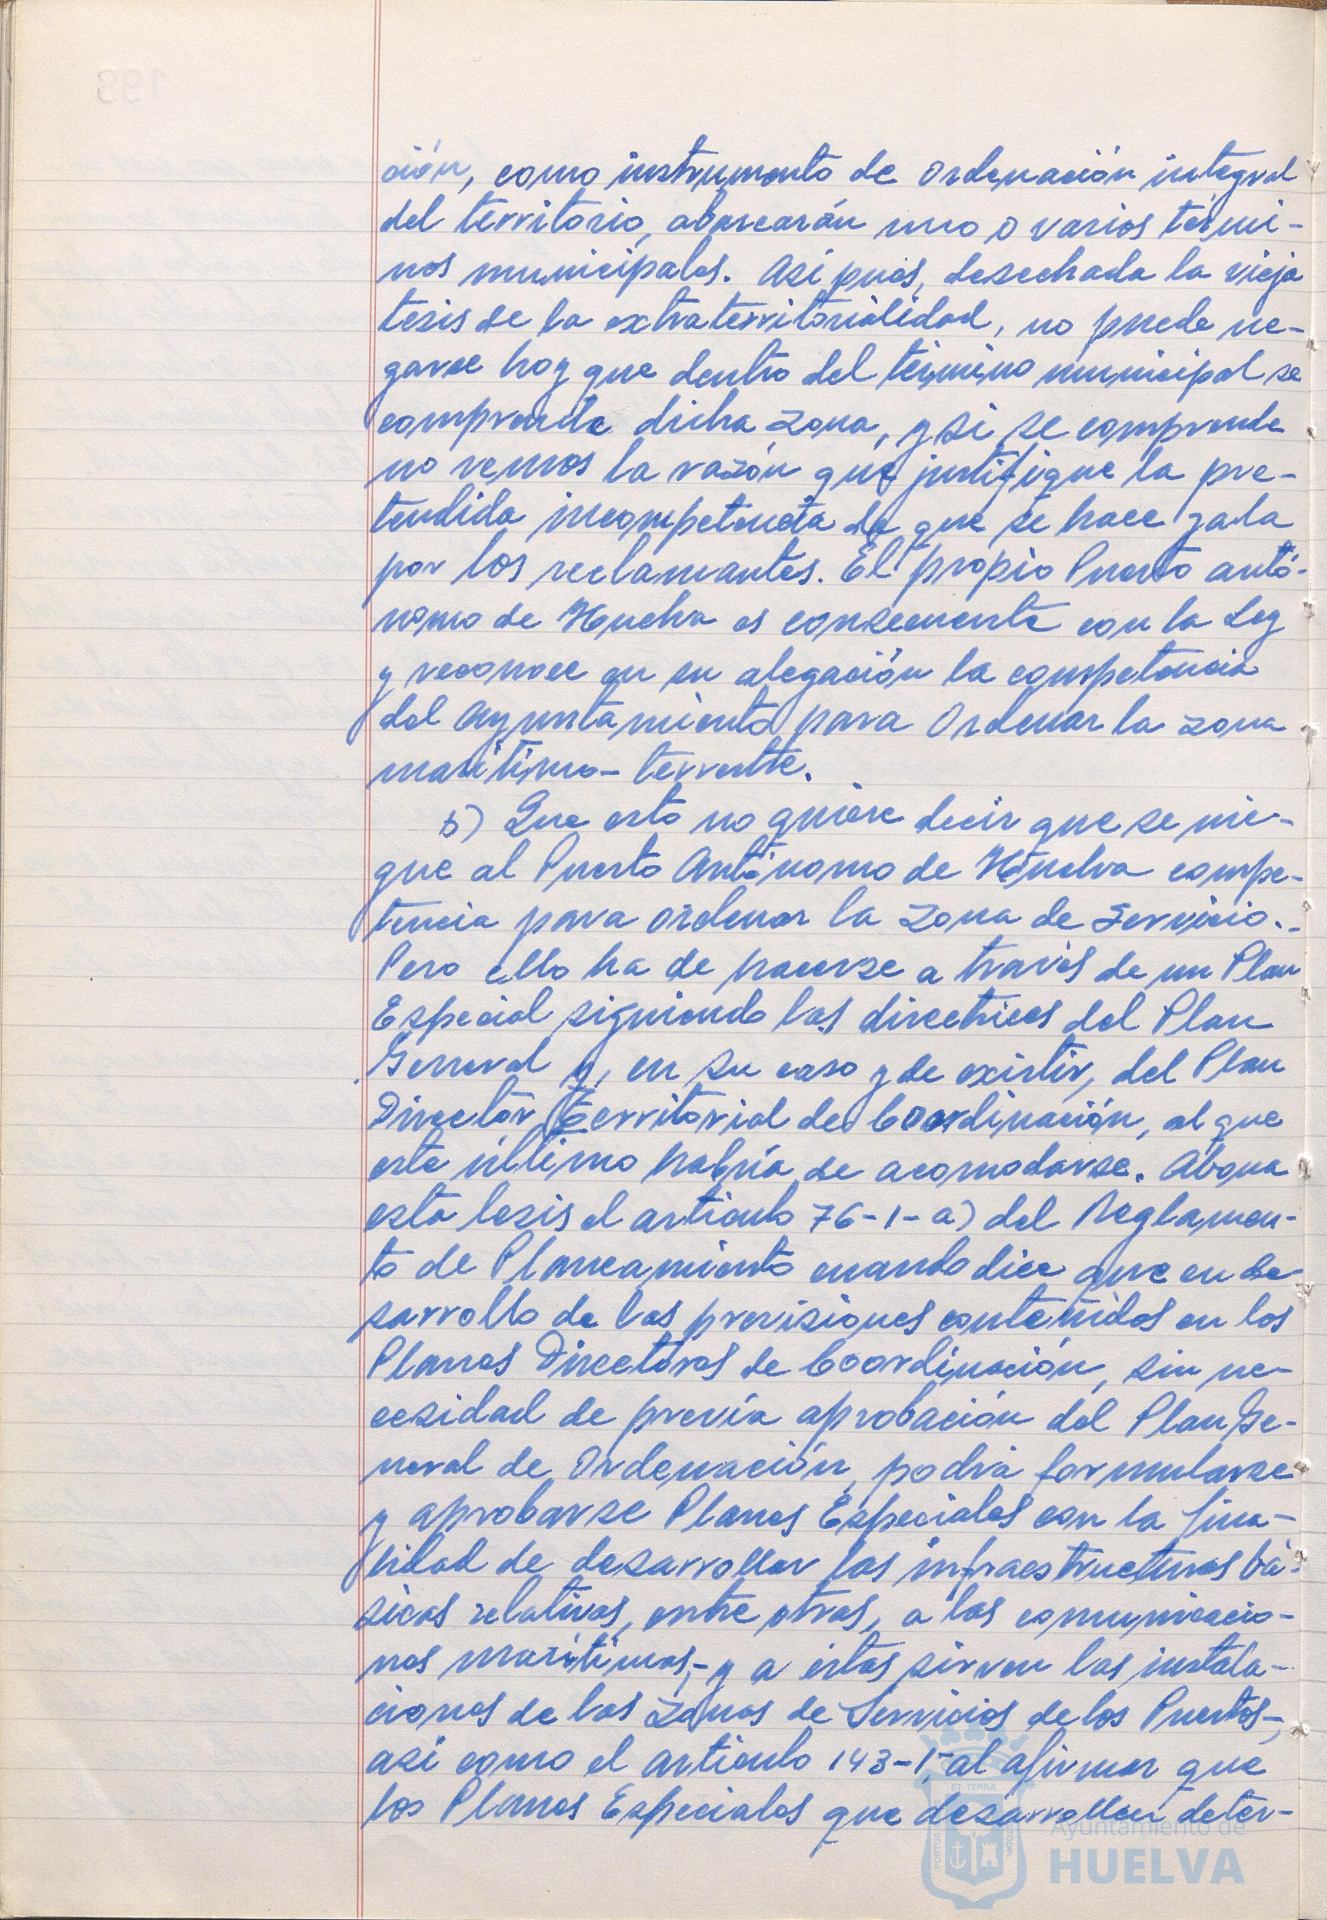 ción, como instrumento de Ordenación integral
del territorio, abarcarán uno o varios térmi-
nos municipales. Así pues, desechada la vieja
tesis de la extraterritorialidad, no puede ne-
garse hoy que dentro del término municipal se
comprende dicha zona, y si se comprende
no vemos la razón que justifique la pre-
tendida incompetencia de que se hace gala
por los reclamantes. El propio Puerto autó-
nomo de Huelva es consecuente con la Ley
y reconoce en su alegación la competencia
del Ayuntamiento para Ordenar la zona
marítimo-terrestre.
b) Que esto no quiere decir que se nie-
gue al Puerto Autónomo de Huelva compe-
tencia para ordenar la zona de Servicio.-
Pero ello ha de hacerse a través de un Plan
Especial siguiendo las directrices del Plan
General y, en su caso y de existir, del Plan
Director Territorial de Coordinación, al que
este último habría de acomodarse. Abona
esta tesis el artículo 76-1-a) del Reglamen-
to de Planeamiento cuando dice que en de-
sarrollo de las previsiones contenidas en los
Planes Directores de Coordinación, sin ne-
cesidad de previa aprobación del Plan Ge-
neral de Ordenación, podrá formularse
y aprobarse Planes Especiales con la fina-
lidad de desarrollar las infraestructuras bá-
sicas relativas, entre otras, a las comunicacio-
nes marítimas,- y a éstas sirven las instala-
ciones de las zonas de Servicios de los Puertos-,
así como el artículo 143-1, al afirmar que
los Planes Especiales que desarrollen deter-
ET TERRA
Ayuntamiento de
HUELVA